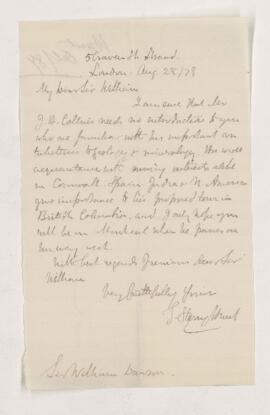 5 Craven St Strand
London. Aug. 28/78
My dear Sir William
I am sure that Mr
J. H. Collins needs no introduction to you
who are familiar with his important con
tributions to geology & mineralogy. His wide
acquaintance with mining interests alike
in Cornwall Spain India & N. America
give importance to his proposed tour in
British Columbia, and I only hope you
will be in Montreal when he passes on
his way west.
With best regards I remain dear Sir
William
Very faithfully Yours
T. Sterry Hunt
Sir William Dawson.